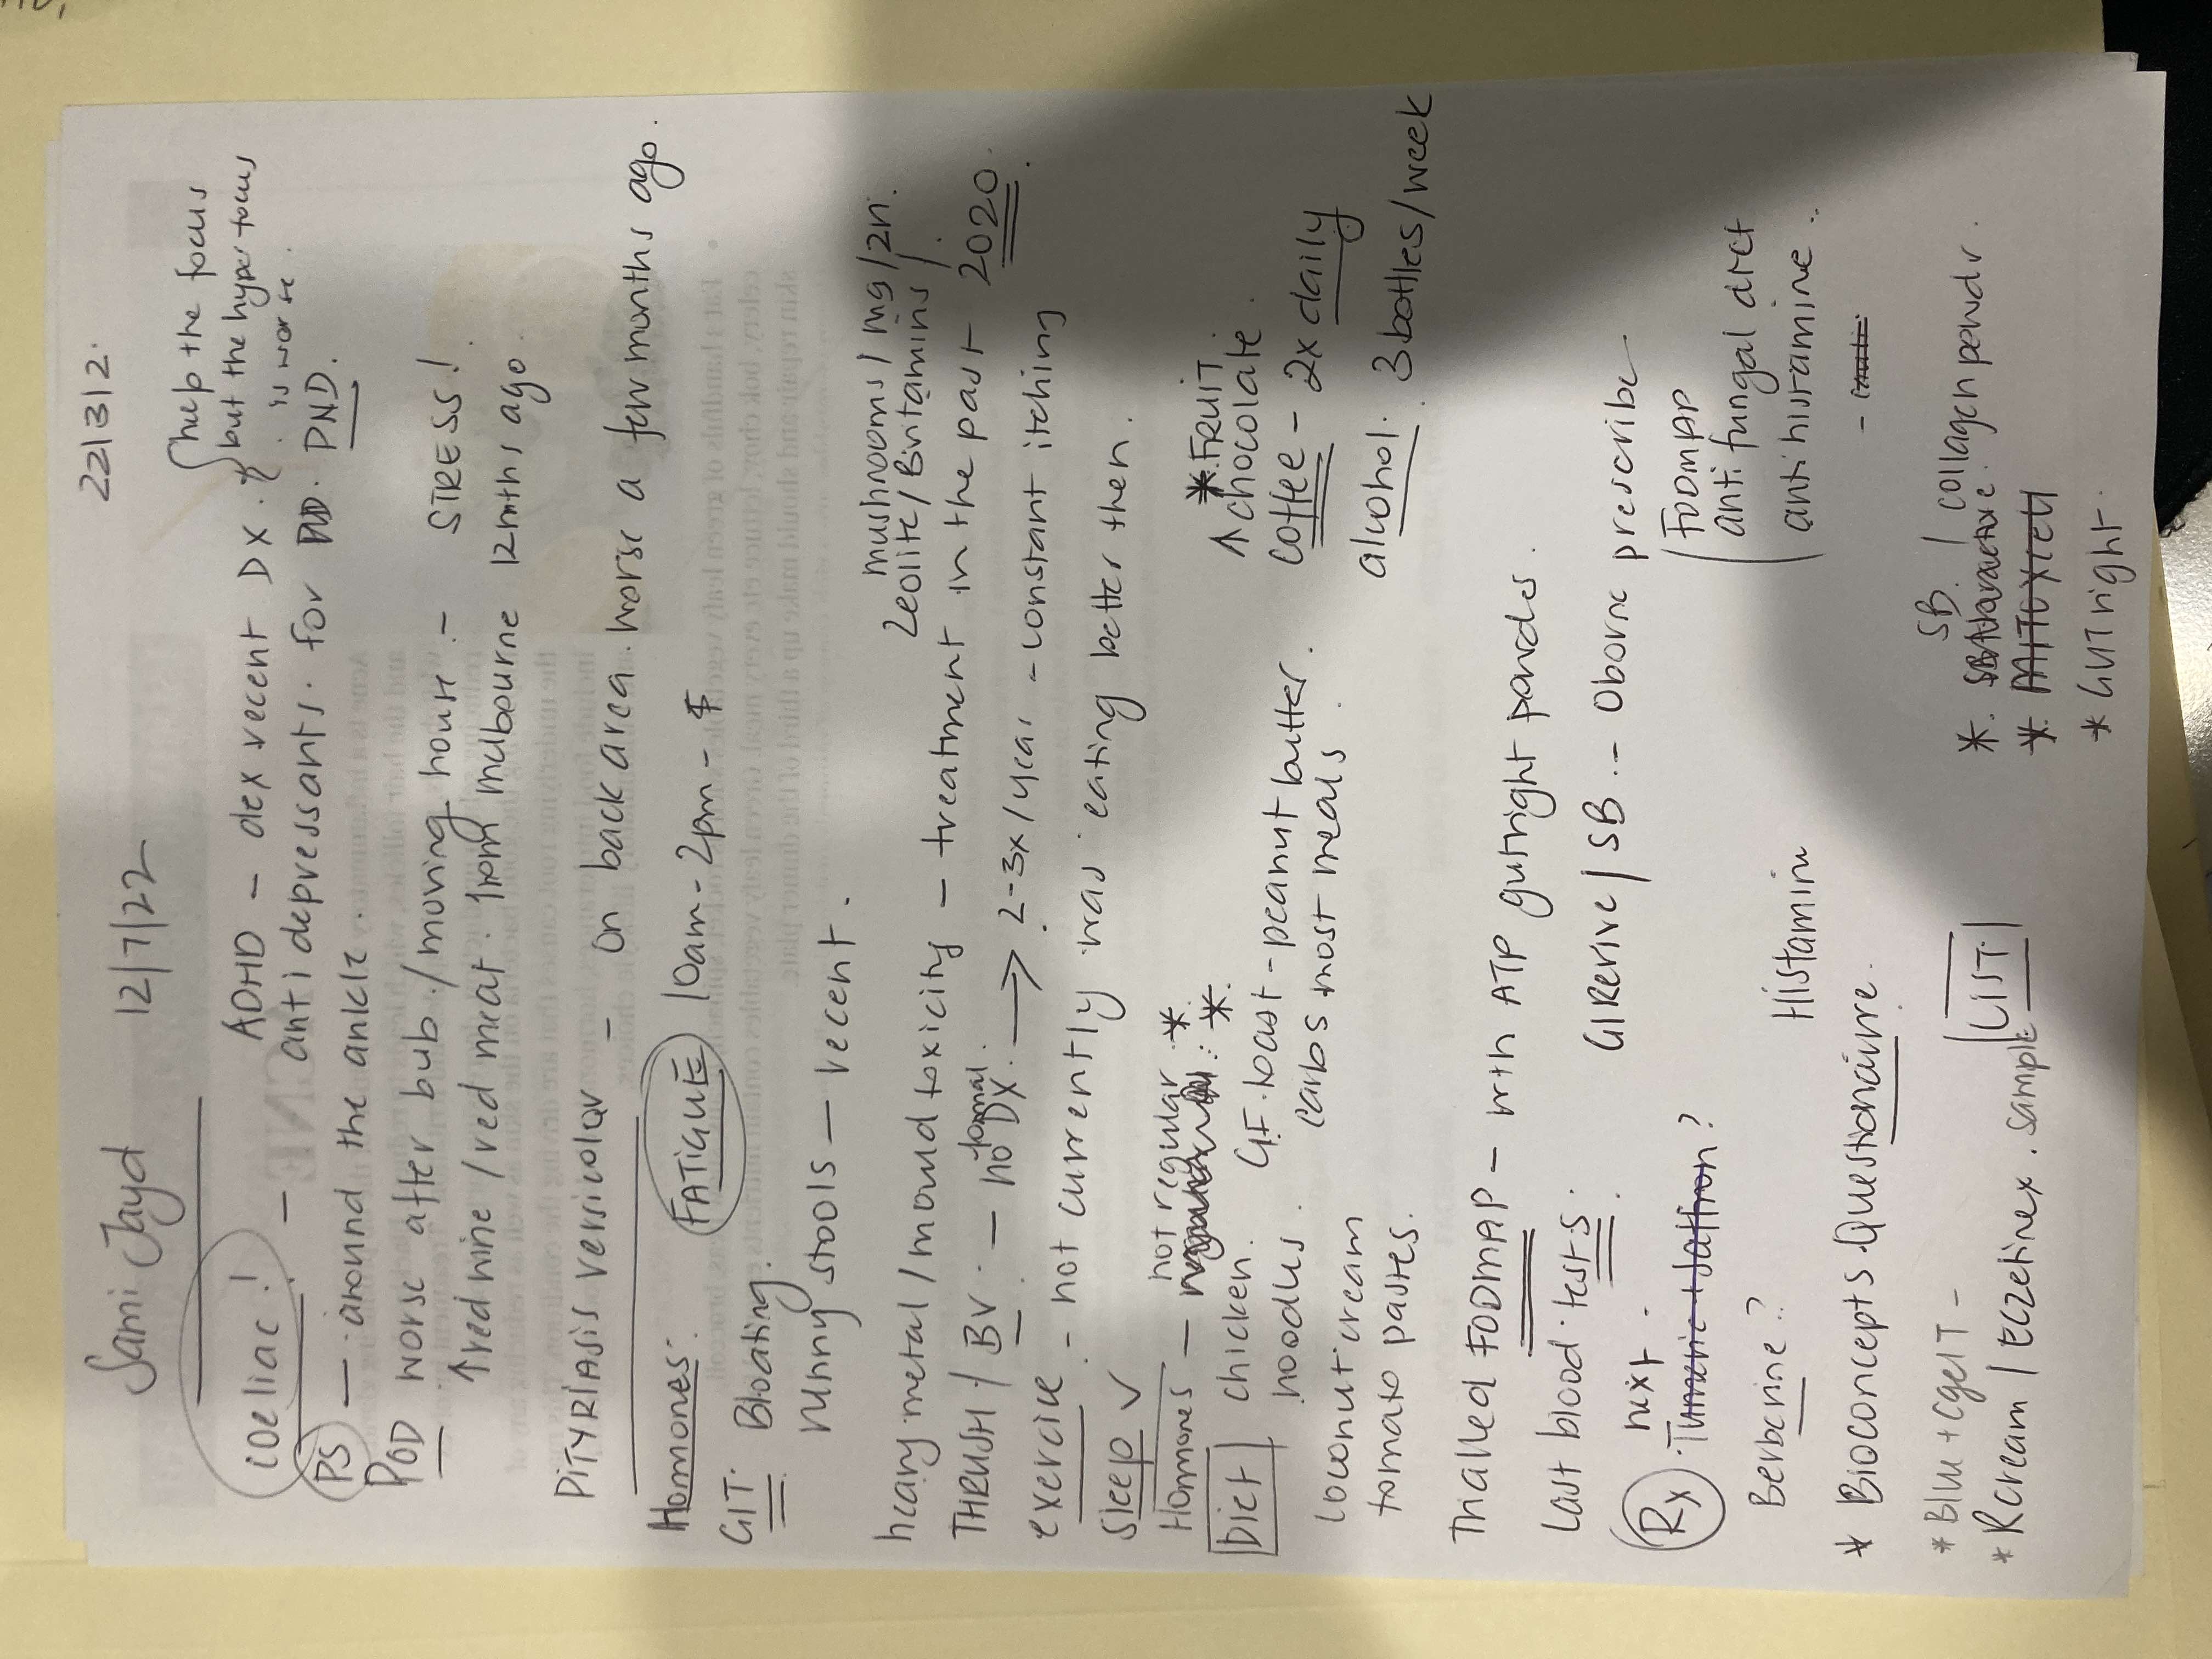 Sami Jayd 12/7/22 22/3/2.
coeliac! ADHD - dex recent DX.
help the focus
but the hyper focus
is worse.
- anti depressants. for PND. PND.
PS - around the ankle.
POD worse after bub / moving house - STRESS!
↑ red wine / red meat. from melbourne 12mths ago
PITYRIASIS versicolor - on back area. worse a few months ago.
Hormones: FATIGUE 10am - 2pm -
GIT. Bloating.
runny stools - recent.
mushrooms / mg / zn.
zeolite / B vitamins /
heavy metal / mould toxicity - treatment in the past 2020.
THRUSH / BV. - no formal DX. → 2-3x / year. - constant itching
exercise - not currently was eating better then.
Sleep ✓
Hormones - not regular *
Diet chicken. GF. toast - peanut butter.
noodles. carbs most meals.
coconut cream
tomato pastes.
* FRUIT
↑ chocolate.
coffee - 2x daily
alcohol. 3 bottles/week
Trialled FODMAP - with ATP gutright powder.
last blood tests. GI Revive / SB. - Oborne prescribe
FODMAP
anti fungal diet
anti histamine.
Rx next.
Tumeric + Saffron?
Berberine? Histamin
* Bioconcepts Questionairre.
* Blu + CgelT -
* R cream / Eczetinex. sample LIST
* SB / collagen powdr.
* GUT right.